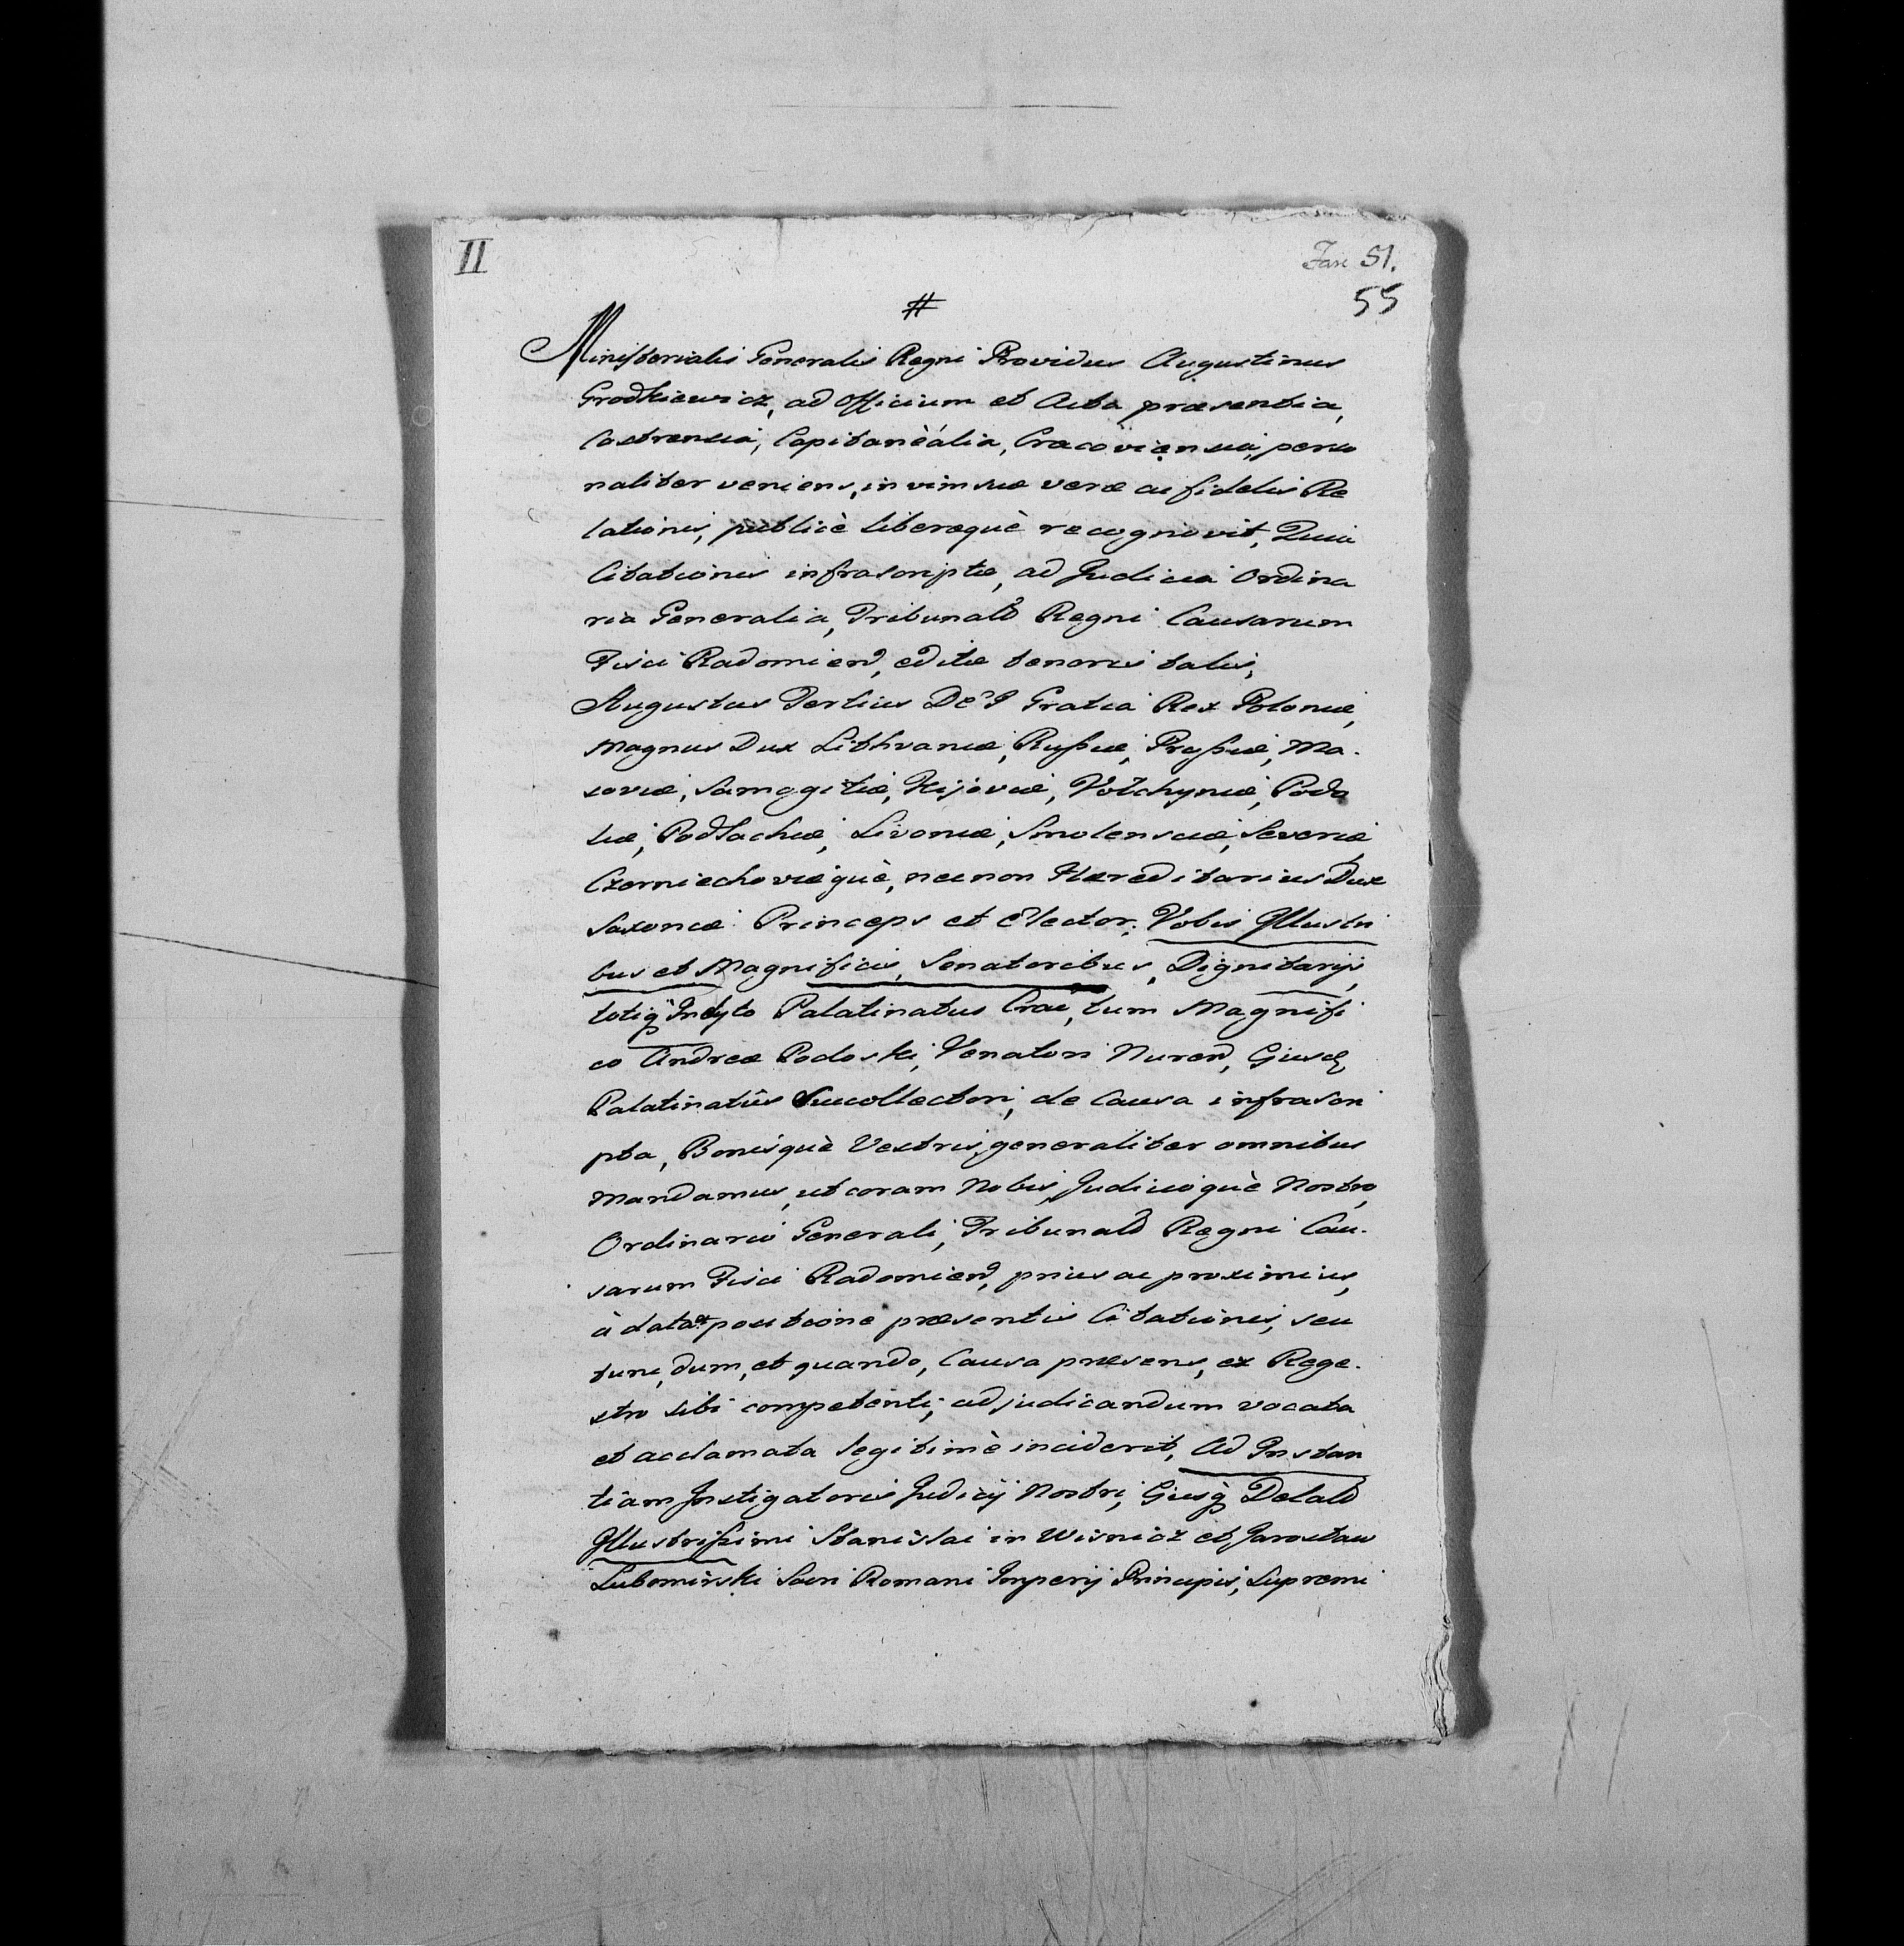 II
Fasc 51.
55
#
Ministerialis Generalis Regni Providus Augustinus
Grodkiewicz, ad officium et Acta præsentia,
Castrensia, Capitanèália, Cracoviensia, perso
naliter veniens, in vim suæ veræ ac fidelis Re
lationis, publicè liberequè recognovit, Quia
Citationis infrascriptæ, ad Judicia Ordina
ria Generalia, Tribunald Regni Causarum
Fisci Radomiend, editæ tenoris talis,
Augustus Tertius DEI Gratia Rex Poloniæ,
Magnus Dux Lithvaniæ, Rußiæ, Prußiæ, Ma.
soviæ, Samogitiæ, Kijoviæ, Volhyniæ, Podo
liæ, Podlachiæ, Livoniæ, Smolensciæ, Severiæ
Czerniechoviæquè, necnon Hæreditarius Dux
Saxoniæ Princeps et Elector. Vobis Illustri
bus et Magnificis, Senatoribus, Dignitarijs,
totiq Inclyto Palatinatus Crac, tum Magnifi
co Andreæ Podoski, Venatori Nurend, Ejusd
Palatinatûs Succollectori, de Causa infrascri
pta, Bonisquè Vestris, generaliter omnibus
Mandamus, ut coram Nobis, Judicioquè Nostro,
Ordinario Generali, Tribunald Regni Cau.
sarum Fisci Radomiend, prius ac proximius,
à data positione præsentis Citationis, seu
tunc, dum, et quando, Causa præsens, ex Rege.
stro sibi competenti, adjudicandum vocata
et acclamata legitimè inciderit, Ad Instan
tiam Instigatoris Judicij Nostri, Ejusq Delald
Illustrißimi Stanislai in Wisnicz et Jaroslaw
Lubomirski Sacri Romani Imperij Principis, Supremi